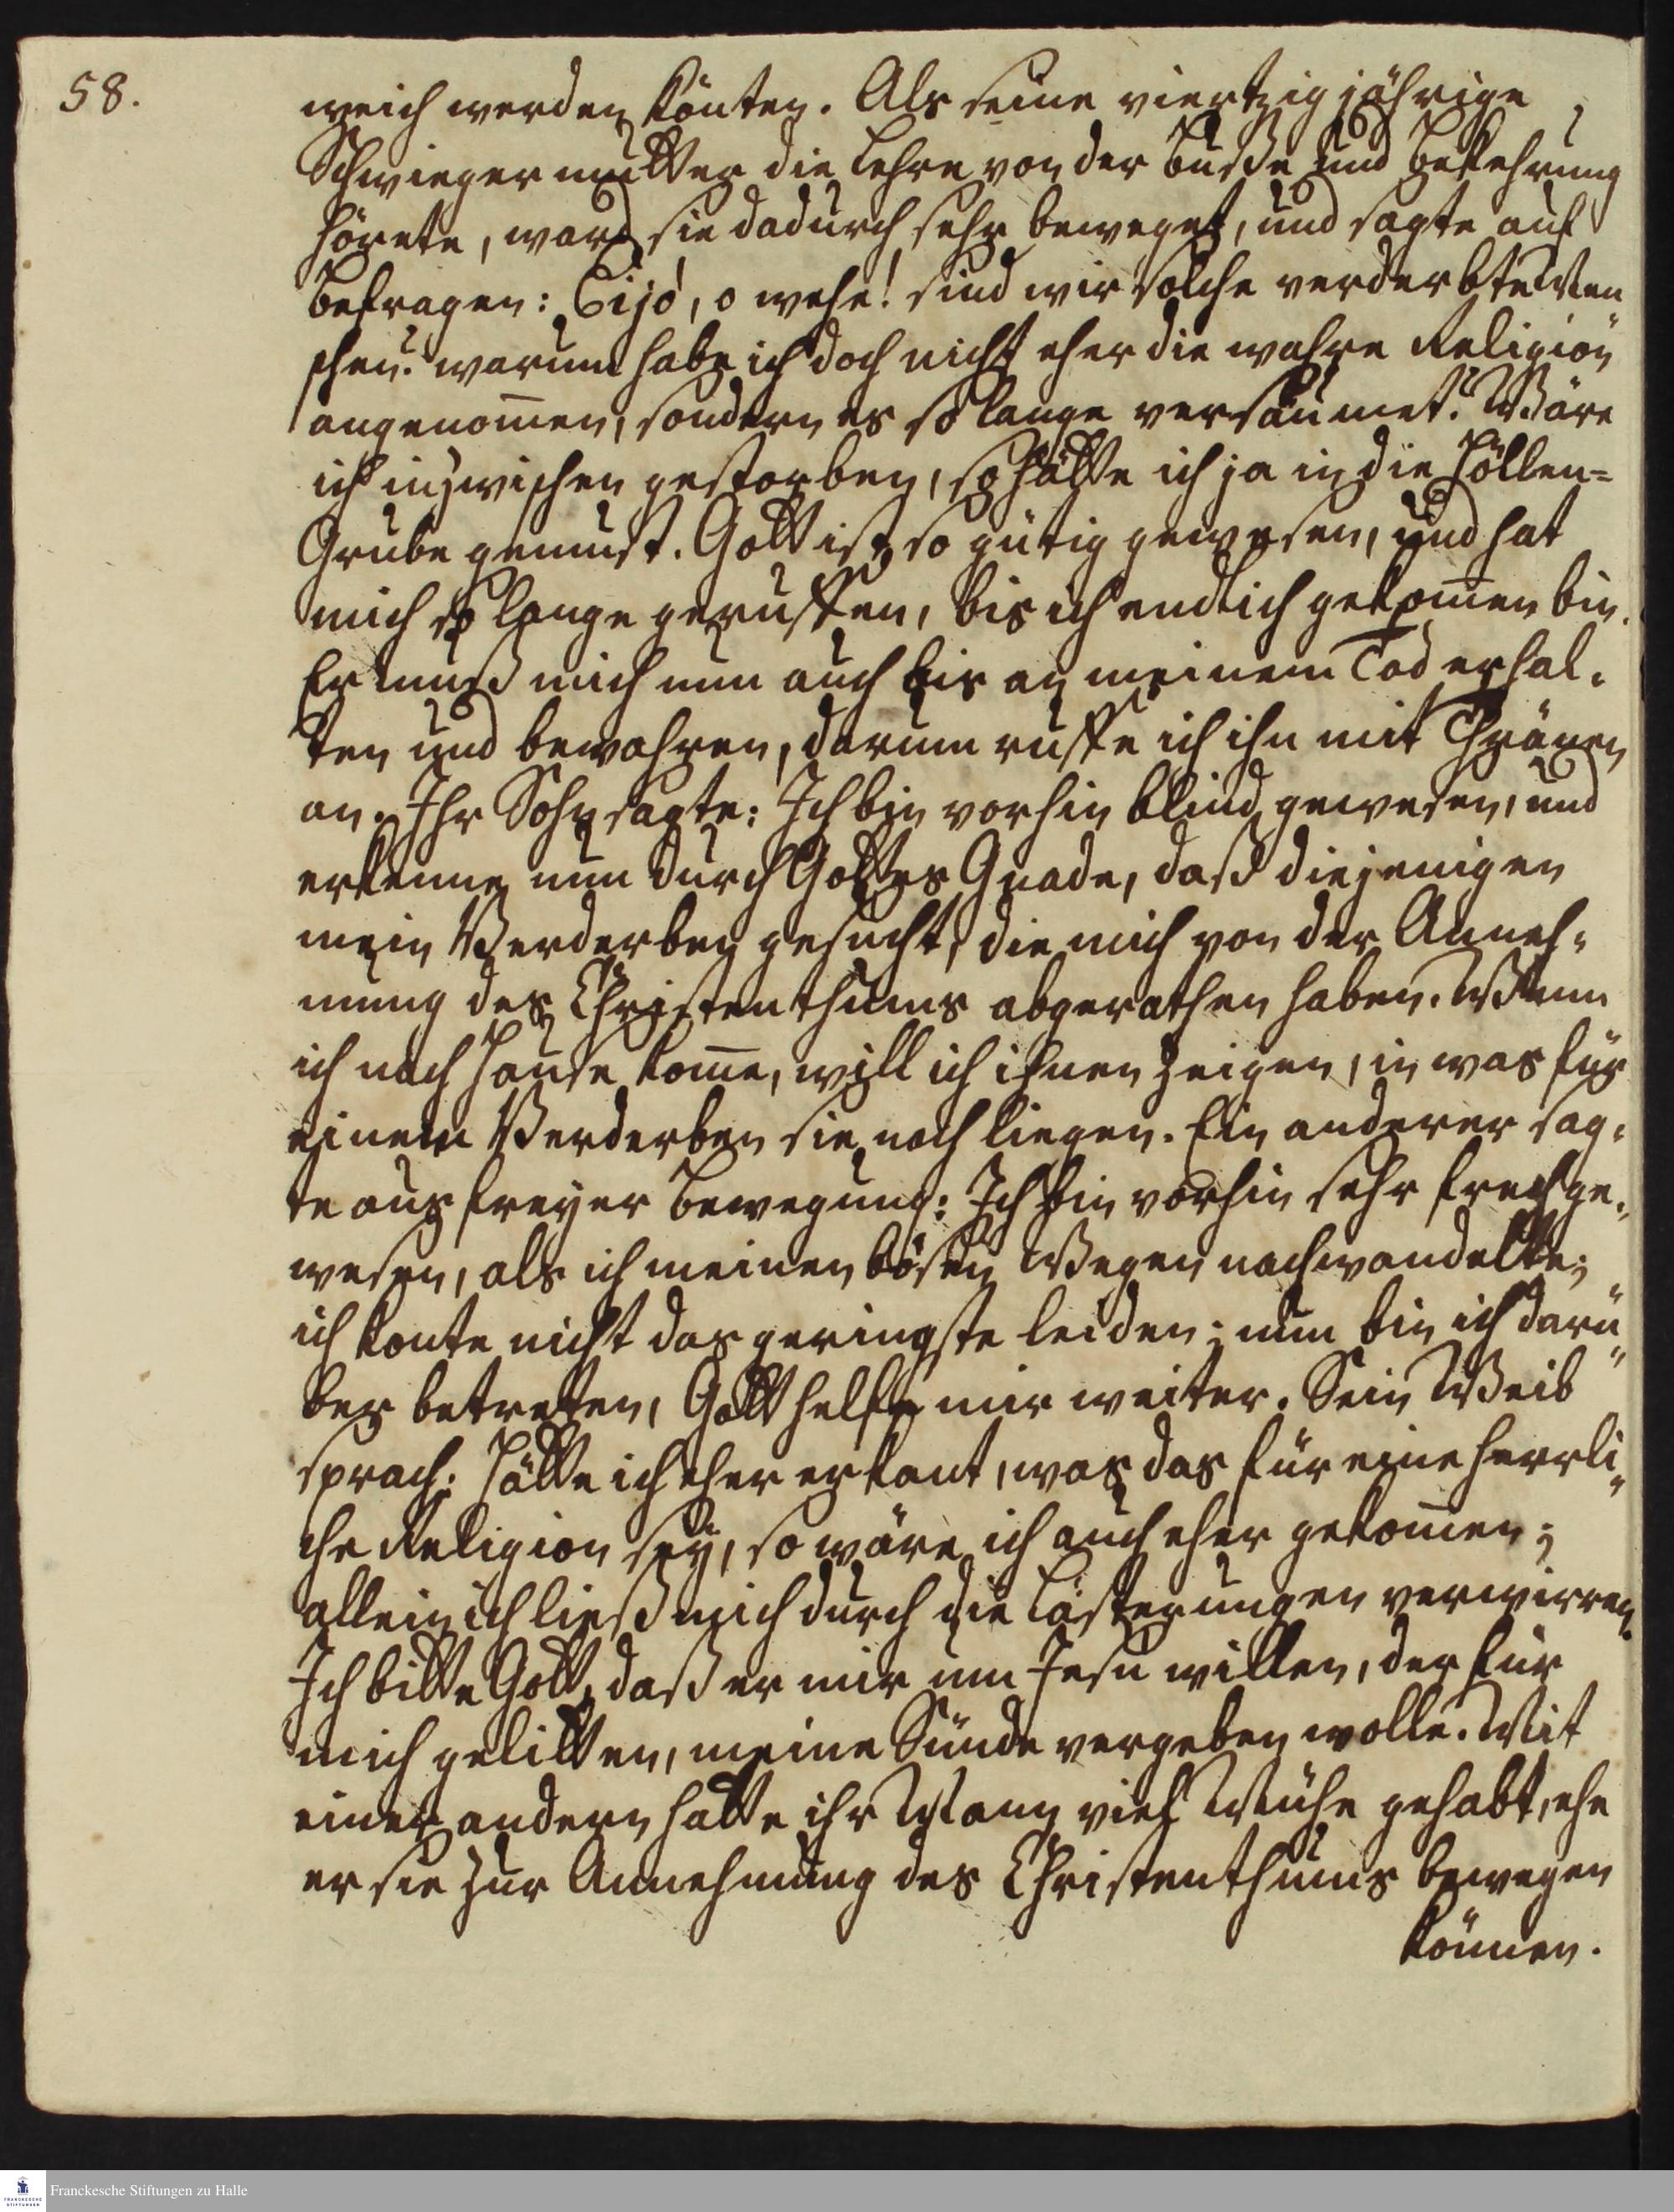 58.
weich werden könten. Als seine viertzigjährige
Schwiegermutter die Lehre von der Buße und Bekehrung
hörete, ward sie dadurch sehr beweget, und sagte auf
Befragen: Eijo, o wehe! sind wir solche verderbte Men
schen? warum habe ich doch nicht eher die wahre Religion
angenom̅en, sondern es so lange versäumet? Wäre
ich inzwischen gestorben, so hätte ich ja in die Höllen=
Grube gemust. Gott ist so gütig gewesen, und hat
mich so lange geruffen, bis ich endlich gekom̅en bin.
Er muß mich nun auch bis an meinem Tod erhal-
ten und bewahren, darum ruffe ich ihn mit Thränen
an. Ihr Sohn sagte: Ich bin vorhin blind gewesen, und
erkenne nun durch Gottes Gnade, daß diejenigen
mein Verderben gesucht, die mich von der Anneh-
mung des Christenthums abgerathen haben. Wenn
ich nach Hause kom̅e, will ich ihnen zeigen, in was für
einem Verderben sie noch liegen. Ein anderer sag-
te aus freyer Bewegung: Ich bin vorhin sehr frech ge-
wesen, als ich meinen bösen Wegen nachwandelte;
ich konte nicht das geringste leiden; nun bin ich darü-
ber betreten, Gott helffe mir weiter. Sein Weib
sprach: Hätte ich eher erkant, was das für eine herrli-
che Religion sey, so wäre ich auch eher gekom̅en;
allein ich ließ mich durch die Lästerungen verwirren.
Ich bitte Gott, daß er mir um Jesu willen, der für
mich gelitten, meine Sünde vergeben wolle. Mit
einer andern hatte ihr Mann viel Mühe gehabt, ehe
er sie zur Annehmung des Christenthums bewegen
können.
FRANCKESCHE STIFTUNGEN
Franckesche Stiftungen zu Halle